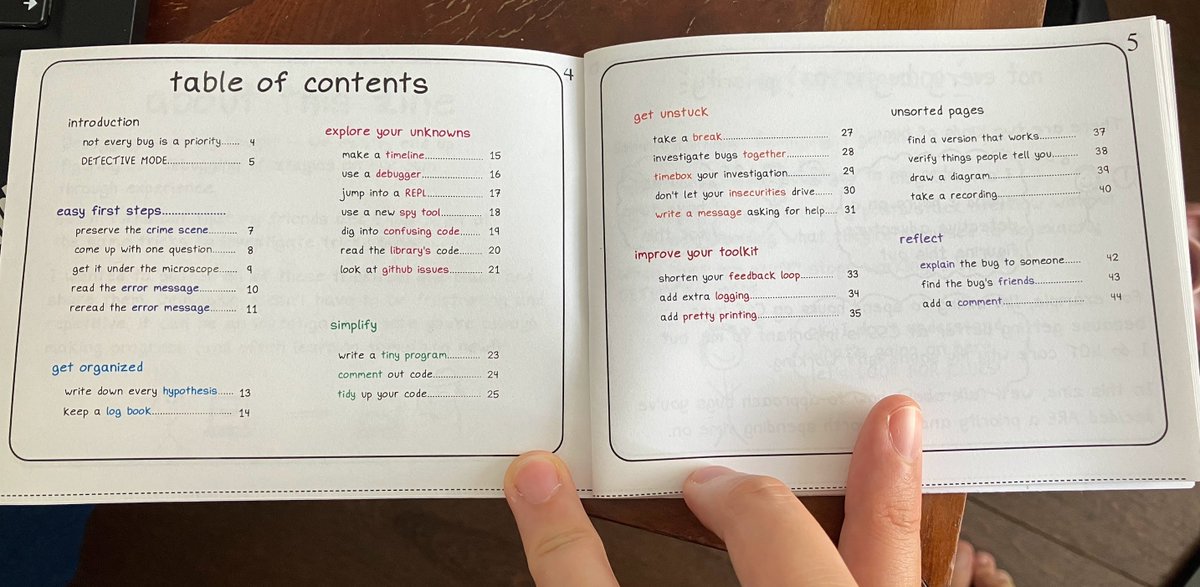 4
table of contents
introduction
not every bug is a priority....... 4
DETECTIVE MODE............................ 5
easy first steps....................
preserve the crime scene........... 7
come up with one question......... 8
get it under the microscope....... 9
read the error message.............. 10
reread the error message........... 11
get organized
write down every hypothesis...... 13
keep a log book.............................. 14
explore your unknowns
make a timeline...................... 15
use a debugger........................ 16
jump into a REPL.................... 17
use a new spy tool................ 18
dig into confusing code........ 19
read the library's code......... 20
look at github issues............. 21
simplify
write a tiny program............ 23
comment out code................... 24
tidy up your code.................... 25
5
get unstuck
take a break........................................ 27
investigate bugs together................ 28
timebox your investigation............... 29
don't let your insecurities drive...... 30
write a message asking for help.... 31
improve your toolkit
shorten your feedback loop............ 33
add extra logging............................... 34
add pretty printing............................. 35
unsorted pages
find a version that works............. 37
verify things people tell you......... 38
draw a diagram.................................. 39
take a recording................................ 40
reflect
explain the bug to someone...... 42
find the bug's friends.................. 43
add a comment.............................. 44